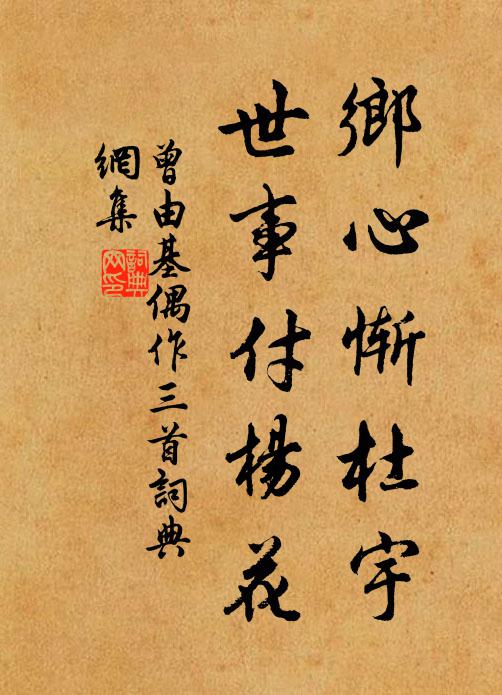 鄉心慚杜宇
世事付楊花
曾由基偶作三首詞典
網集
詞典
网印